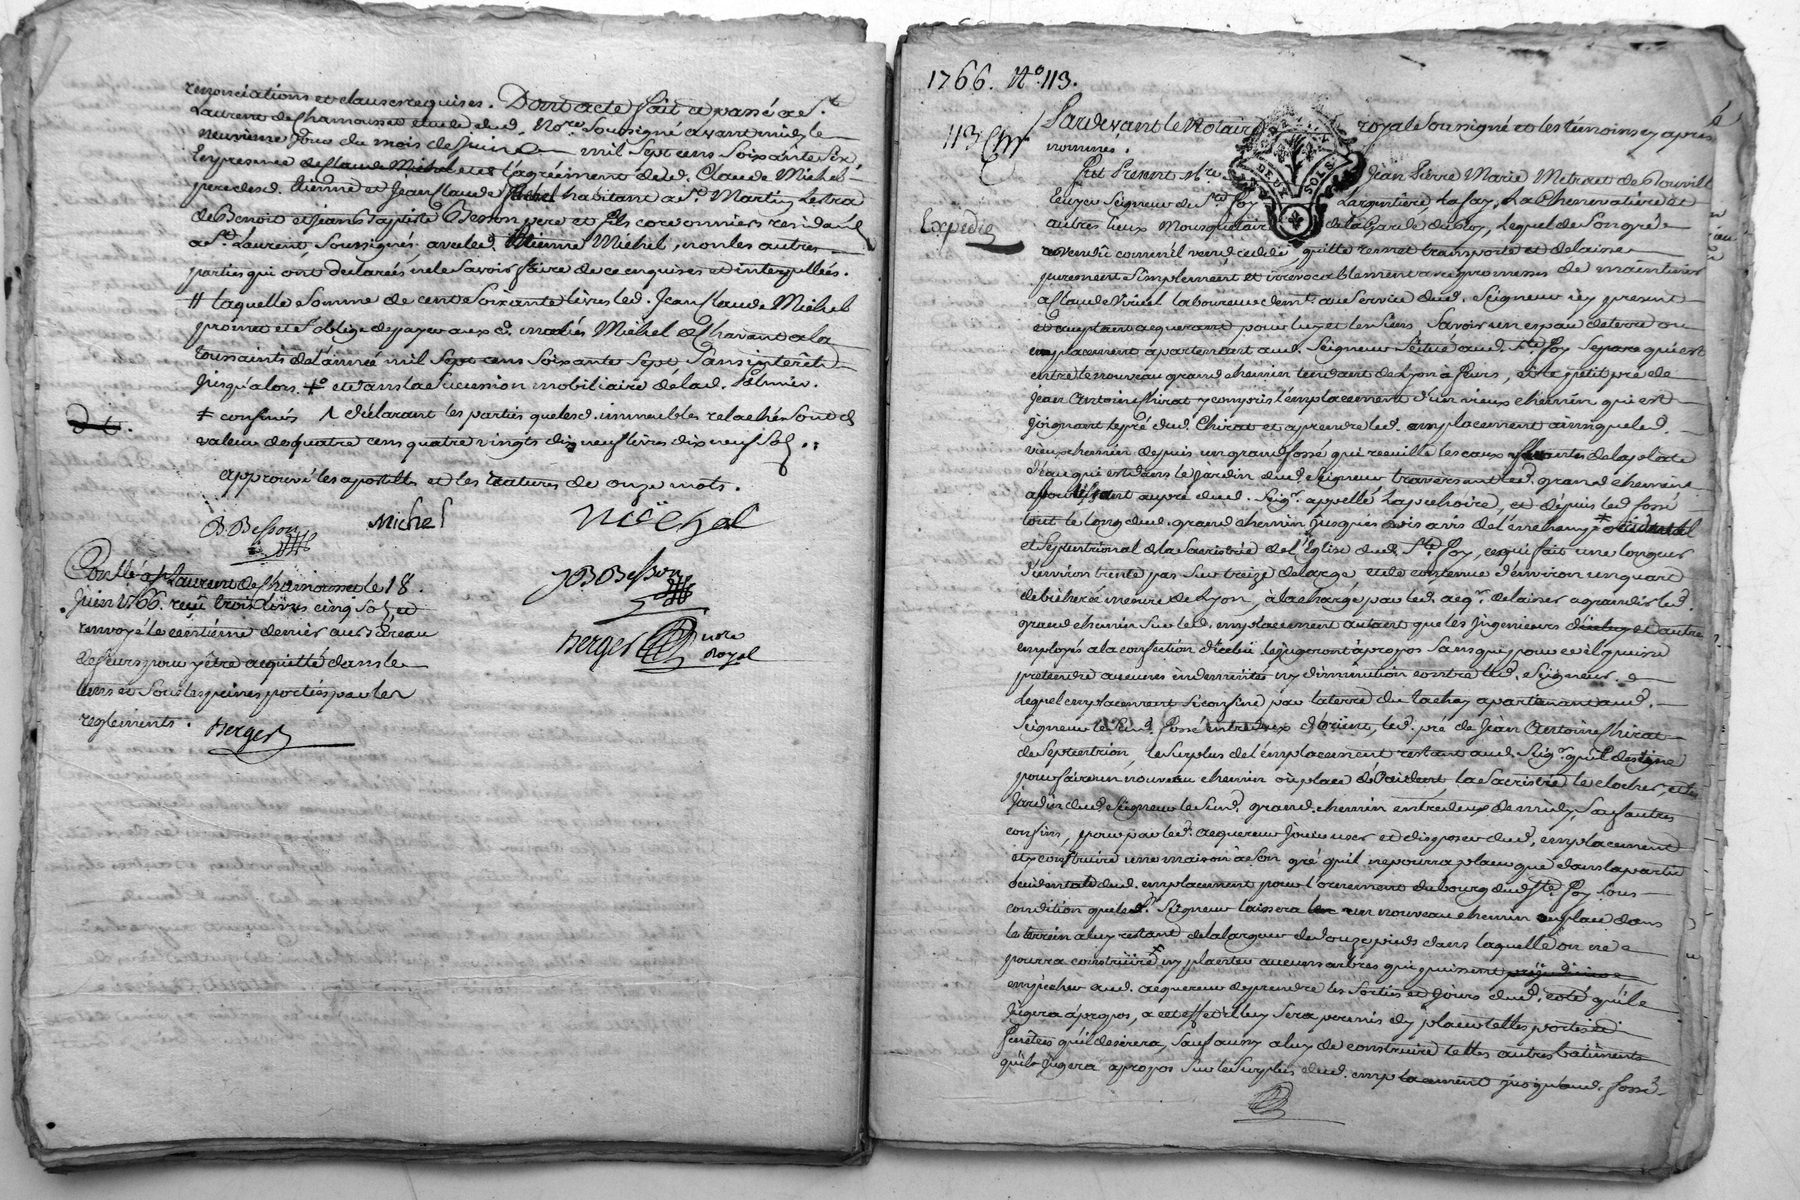 renonciations et clauses requises. Dont acte fait et passé a St
Laurent de Chamousset etude dud. Nore soussigné avant midy le
neuvieme jour du mois de Juin mil sept cens soixante six
En presence de Claude Michel et de l'agréement dud. Claude Michel
pere desd. Etienne et Jean Claude Michel habitant a St. Martin Lestra
de Benoit et Jean Baptiste Besson pere et fils cordonniers residant
a St. Laurent soussignés avec led. Etienne Michel, non les autres
parties qui ont declarées ne le savoir faire de ce enquises et interpellées.
# laquelle somme de cent soixante livres led. Jean Claude Michel
promet et s'oblige de payer aux d. mariés Michel et Chavant a la
toussaints de l'année mil sept cens soixante sept sans interêt
jusqu'alors. + et dans la succession mobiliaire de lad. Palmier.
≠ confinés Λ déclarant les parties que lesd. immeubles relachés sont de
valeur de quatre cens quatre vingts dix neuf livres dix neuf sols.
approuvé les apostilles et les ratures de onze mots.
B Besson Michel Micchel
JB Besson
Berger nore royal
Conllé a St Laurent de Chamousset le 18.
Juin 1766. reçu trois livres cinq sols, et
renvoyé le centieme denier au Bureau
de feurs pour y être acquitté dans le
tems et sous les peines portées par les
reglements.
Berger
1766. No. 113.
113
Expedié
Pardevant le Notaire royal soussigné et les témoins cy apres
nommés.
Fut Present Mre Jean Pierre Marie Metrat de
Ecuyer Seigneur de Ste Foy Largentiere La fay, La Chenevatiere et
autres lieux Mousquetaire de la Garde du Roy, Lequel de son gré
a vendu comme il vend, cede, quitte remet transporte et delaisse
purement simplement et irrevocablement avec promesses de maintenir
a Claude laboureur demt. au service dud. Seigneur icy present
et acceptant acquerant pour luy et les siens, savoir un espace de terre ou
emplacement apartenant aud. Seigneur situé aud. Ste Foy separé qui est
entre le nouveau grand chemin tendant de Lyon a feurs, et le petit pré de
Jean Antoine Chirat y compris l'emplacement d'un vieux chemin qui est
joignant le pré dud. Chirat et a prendre led. emplacement ainsi que led.
vieux chemin depuis un grand fossé qui recueille les eaux de la plate
d'eau qui est dans le jardin dud. Seigneur traversant led. grand chemin
aboutissant au pré dud. Seigr. appellé la pechoire, et depuis led. fossé
tout le long dud. grand chemin jusques vis avis de l'encoignure ≠ occidental
et septentrional de la Sacristie de l'Eglise dud. Ste. Foy, ce qui fait une longueur
d'environ trente pas sur treize de large, et de contenue d'environ un quart
de bicherée mesure de Lyon, à la charge par led. acqr. de laisser agrandir led.
grand chemin sur led. emplacement autant que les Ingenieurs et autres
employés a la confection d'icelui le jugeront à propos sans que pour ce il puisse
pretendre aucunes indemnités ny diminution contre led. Seigneur.
Lequel emplacement se confine par la terre du rachay apartenant aud.
Seigneur led. fossé entre deux d'orient, led. pré de Jean Antoine Chirat
de septentrion, le surplus de l'emplacement restant aud. Seigr. qu'il designe
pour faire un nouveau chemin ou place d'occident, la Sacristie le clocher, et le
jardin dud. Seigneur le sud. grand chemin entre deux de midy, sauf autres
confins, pour par led. acquereur jouir user et disposer dud. emplacement
et y construire une maison a son gré qu'il ne pourra placer que dans la partie
occidentale dud. emplacement pour l'ornement du bourg dud. Ste. Foy sous
condition que led. Seigneur laissera un nouveau chemin ou place dans
le terrein a luy restant de la largeur de douze pieds dans laquelle on ne
pourra construire ≠ ny planter aucuns arbres qui puissent
empecher aud. acquereur de prendre les sorties et jours dud. coté qu'il
jugera a propos, a cet effet il luy sera permis d'y placer telles portes et
fenêtres qu'il desirera, sauf aussy a luy de construire telles autres batiments
qu'il jugera a propos sur le surplus dud. emplacement jusqu'aud. fossé